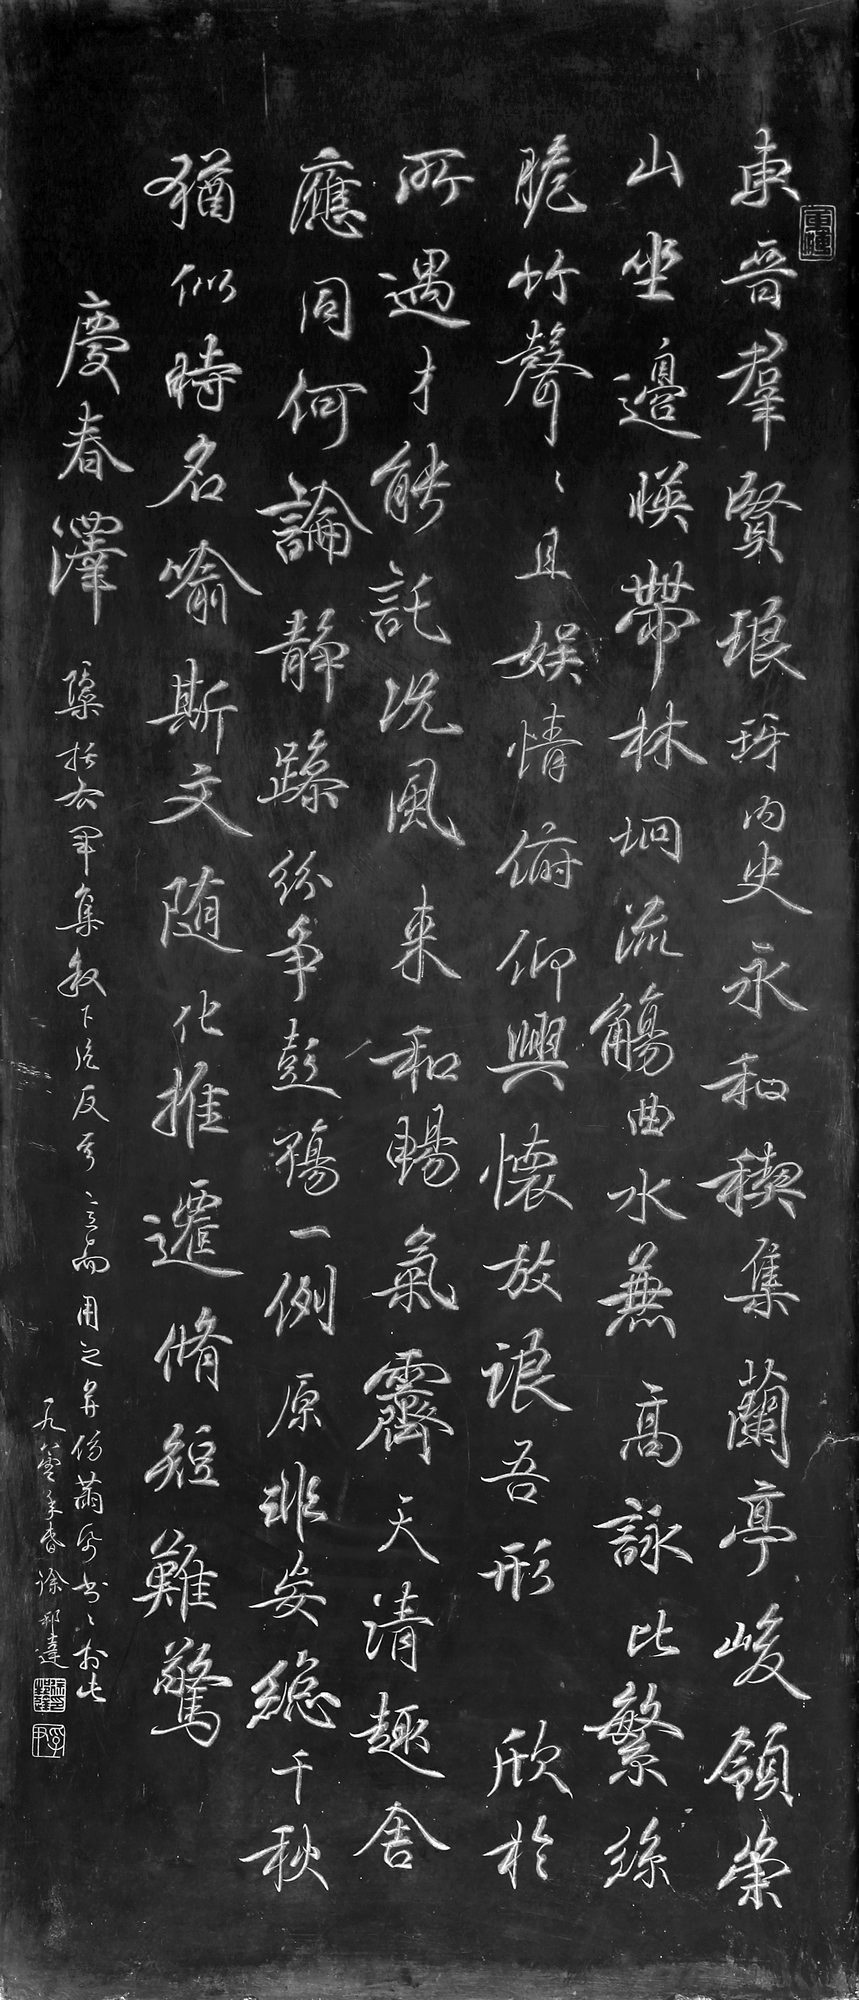 東晉羣賢琅玡内史永和稧集蘭亭峻領崇
山坐邊暎帶林坰流觴曲水兼高詠比繁絲
脆竹聲〻且娛情俯仰興懷放浪吾形 欣於
所遇才能託況風 来和暢氣霽天清趣舍
應同何論靜躁紛爭彭殤一例原非妄緫千秋
猶似時名喻斯文随化推遷脩短難驚
慶春澤 檃括右軍集敘下後反其意而用之并仿蘭亭書〻於此
一九八零年春徐邦達